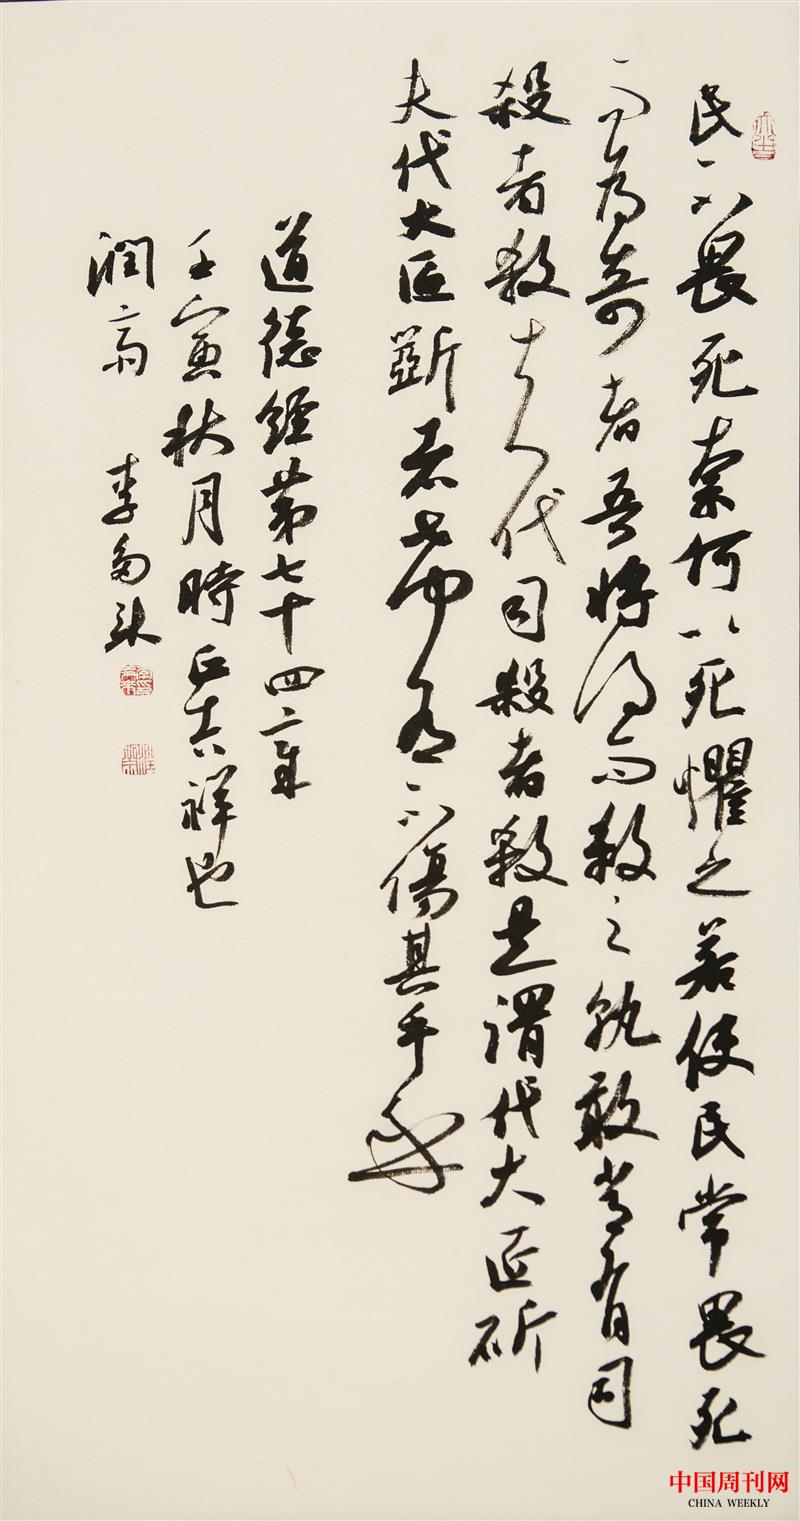 民不畏死奈何以死懼之若使民常畏死
而為奇者吾將得而殺之孰敢常有司
殺者殺夫代司殺者殺是謂代大匠斫
夫代大匠斲者希有不傷其手矣
道德經第七十四章
壬寅秋月時正吉祥也
潤齋 李
中国周刊网
CHINA WEEKLY